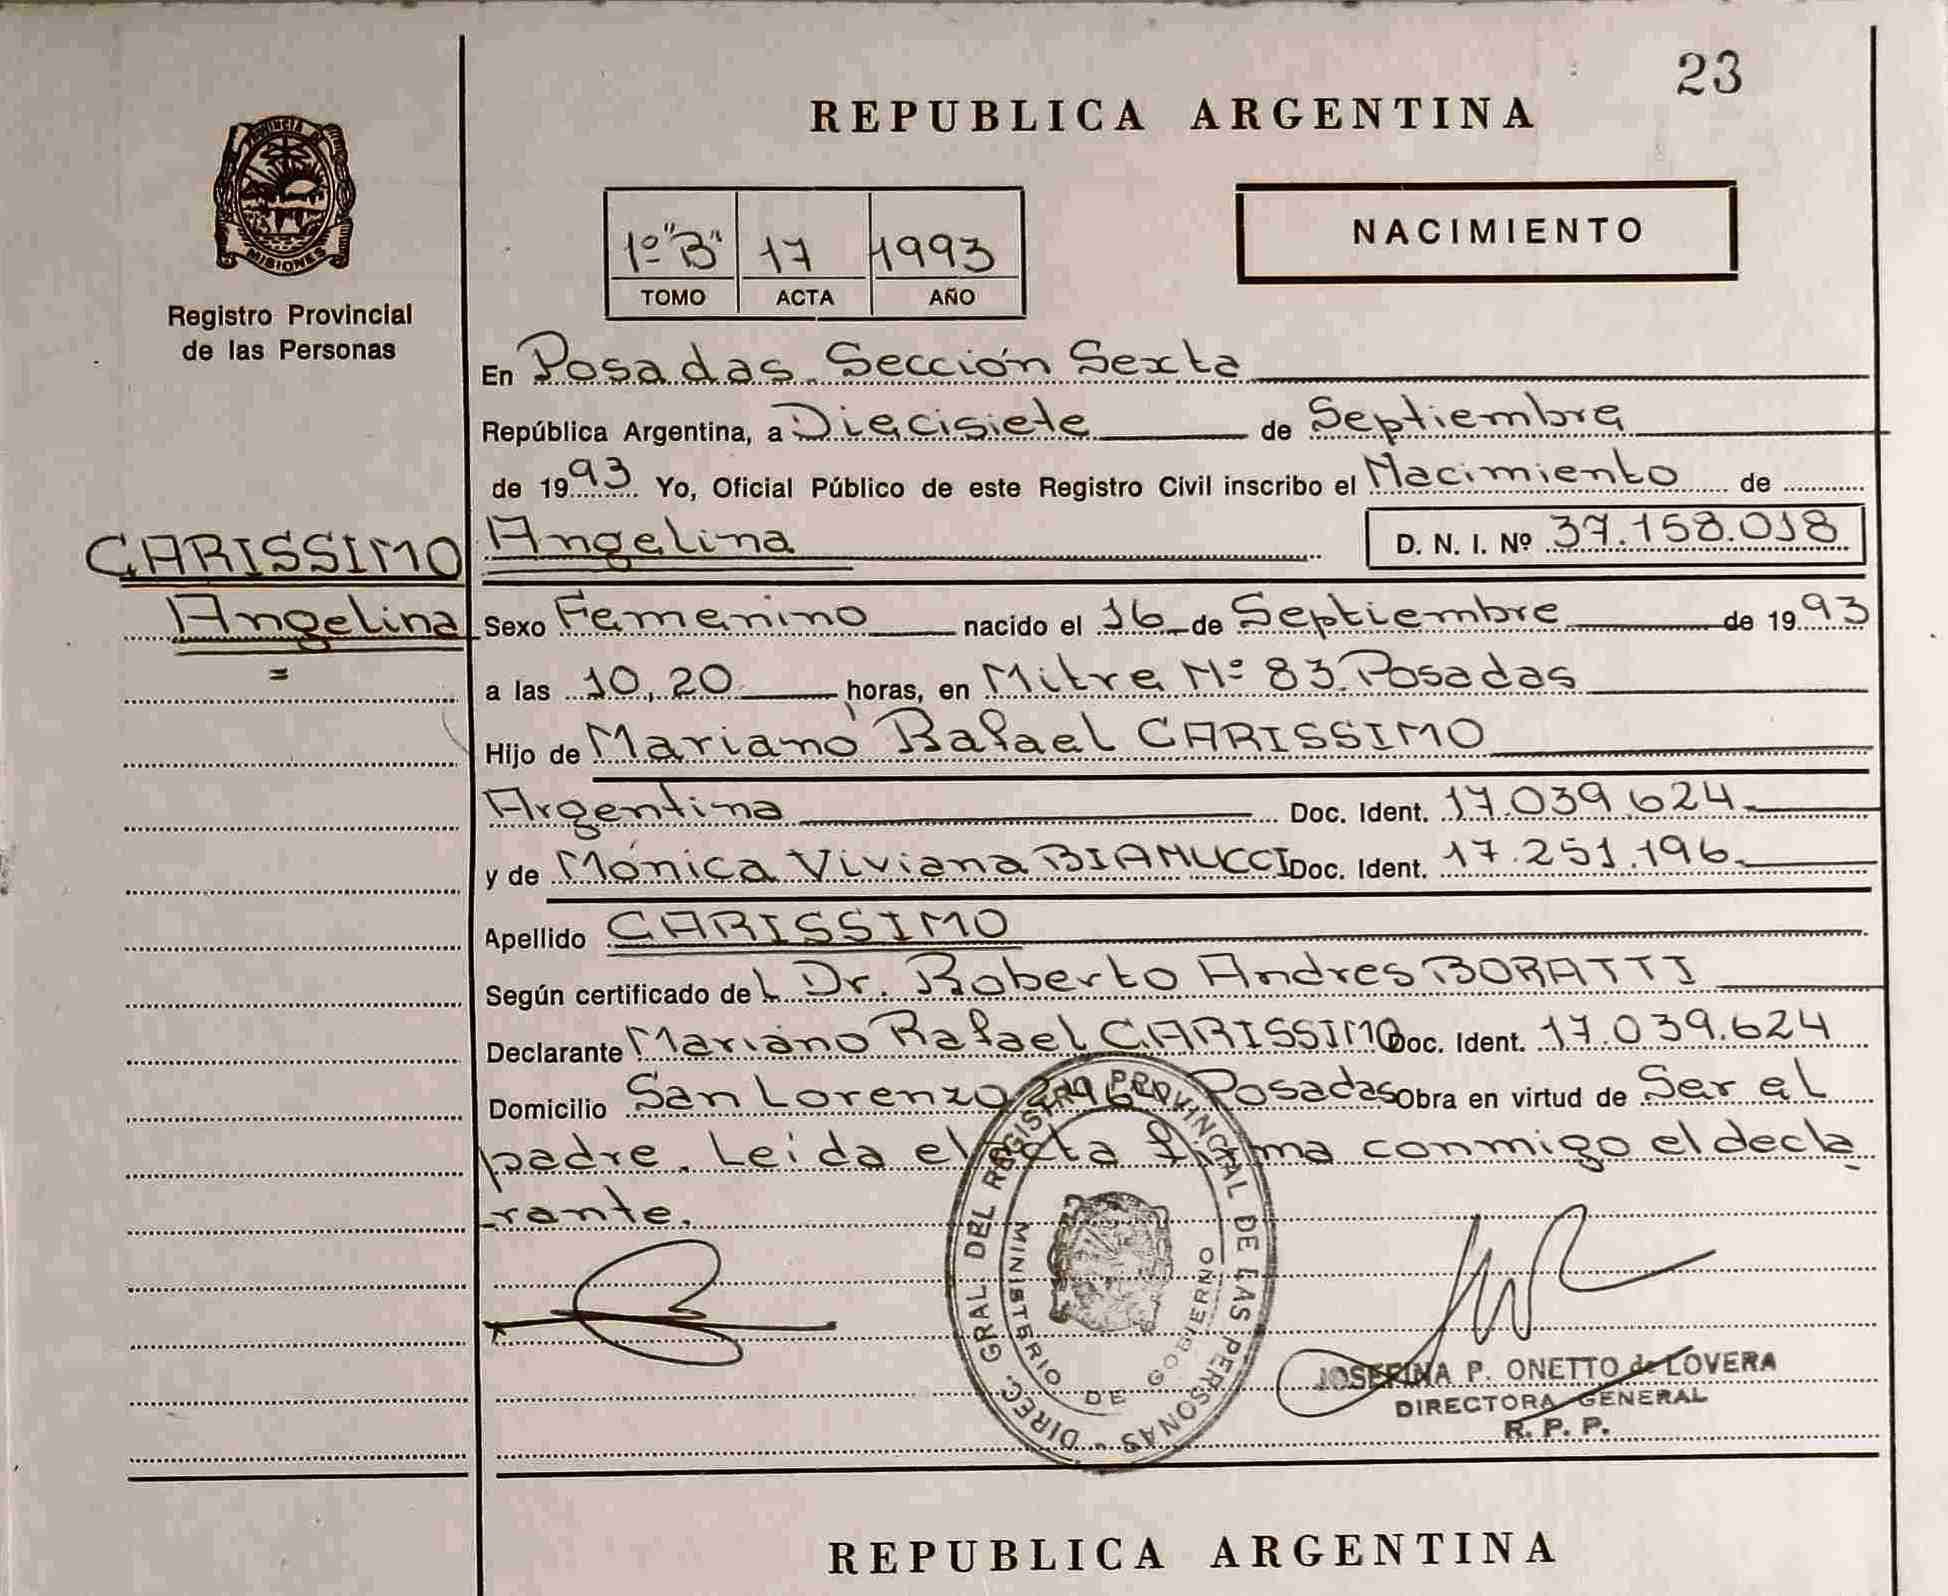 23
REPUBLICA ARGENTINA
PROVINCIA DE
MISIONES
Registro Provincial
de las Personas
1º "B" 17 1993
TOMO ACTA AÑO
NACIMIENTO
En Posadas Sección Sexta
República Argentina, a Diecisiete de Septiembre
de 1993 Yo, Oficial Público de este Registro Civil inscribo el Nacimiento de
CARISSIMO Angelina D. N. I. Nº 37.158.018
Angelina Sexo Femenino nacido el 16 de Septiembre de 1993
a las 10,20 horas, en Mitre Nº 83 Posadas
Hijo de Mariano Rafael CARISSIMO
Argentina Doc. Ident. 17.039.624
y de Mónica Viviana BIANUCCI Doc. Ident. 17.251.196
Apellido CARISSIMO
Según certificado del Dr. Roberto Andres BORATTI
Declarante Mariano Rafael CARISSIMO Doc. Ident. 17.039.624
Domicilio San Lorenzo Posadas Obra en virtud de Ser el
padre. Leida el acta firma conmigo el decla
rante.
DIREC. GRAL DEL REGISTRO PROVINCIAL DE LAS PERSONAS
MINISTERIO DE GOBIERNO
JOSEFINA P. ONETTO de LOVERA
DIRECTORA GENERAL
R. P. P.
REPUBLICA ARGENTINA